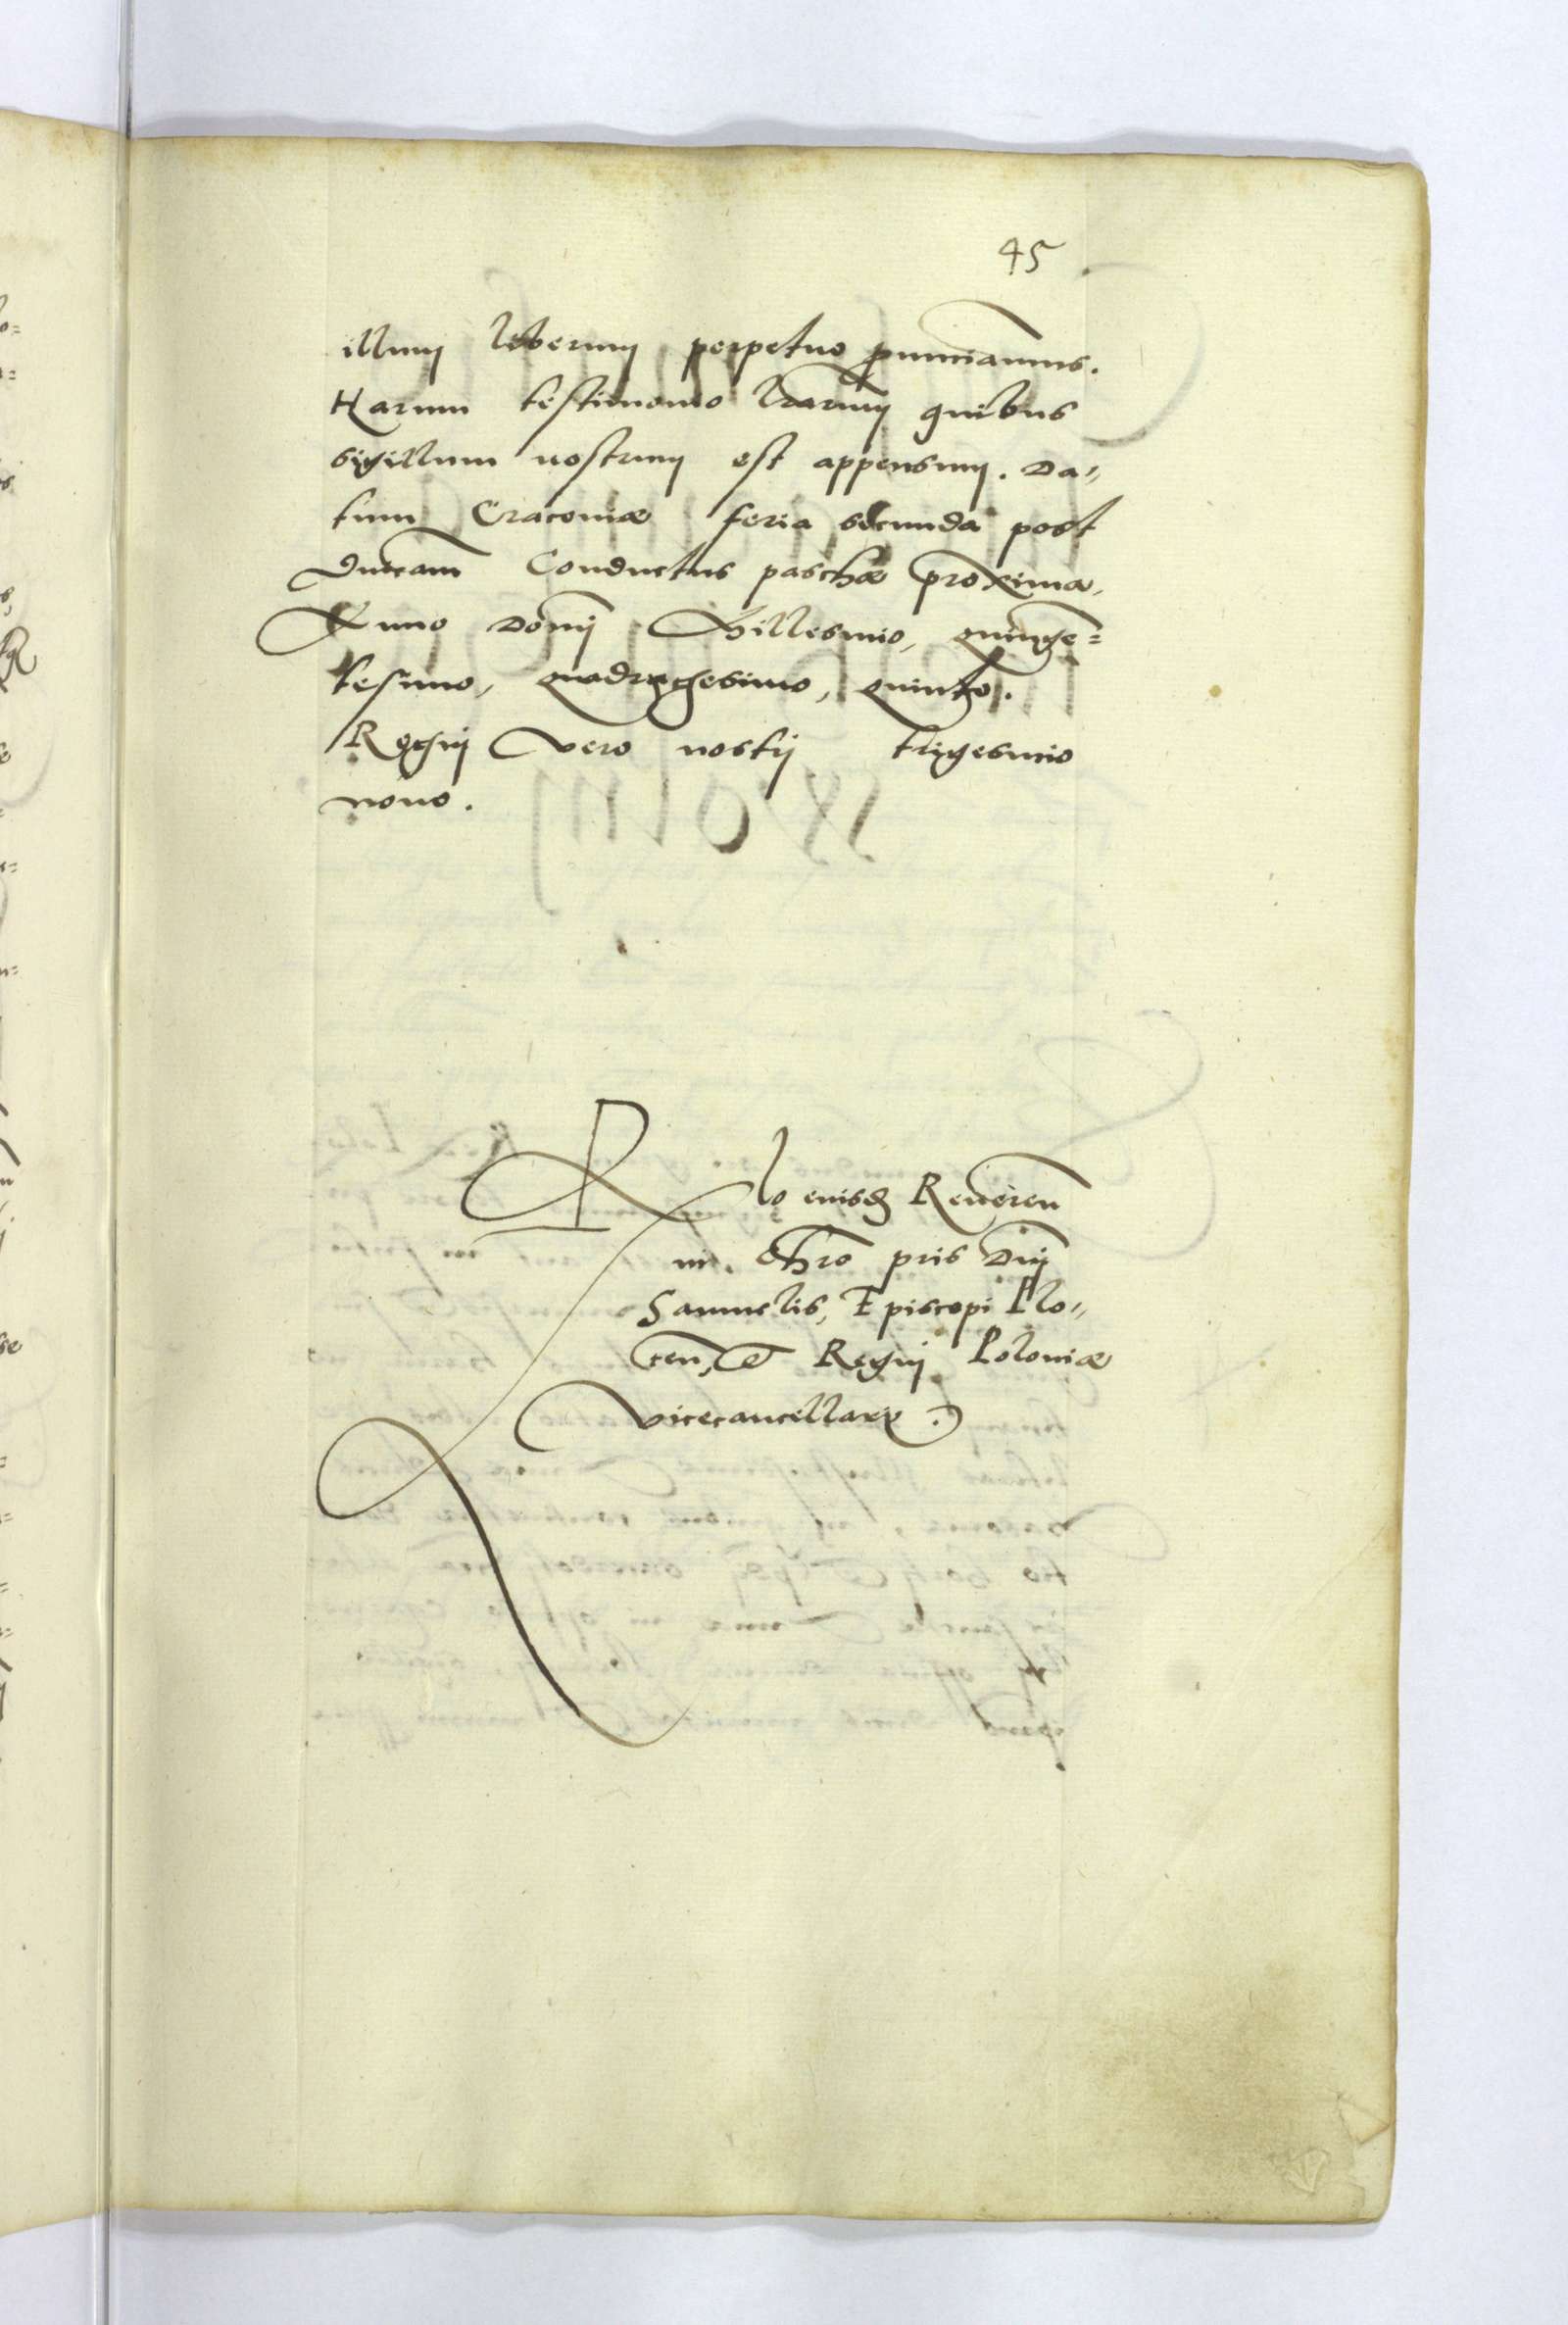 45
illum liberum perpetuo pnunciamus.
Harum testimonio lrarum quibus
sigillum nostrum est appensum. Da„
tum Cracoviæ feria secunda post
Dnicam Conductus paschæ proxima.
Anno Domij Millesimo, quinge=
tesimo, quadragesimo, quinto.
Regnij vero nostrj trigesimo
nono.
Rlo eiusd Reveren
in. Chro pris Dnj
Samuelis, Episcopi Plo„
cen, et Regnj Poloniæ
vicecancellarij.